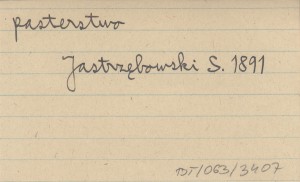 pasterstwo
Jastrzębowski S. 1891
BT/063/3407